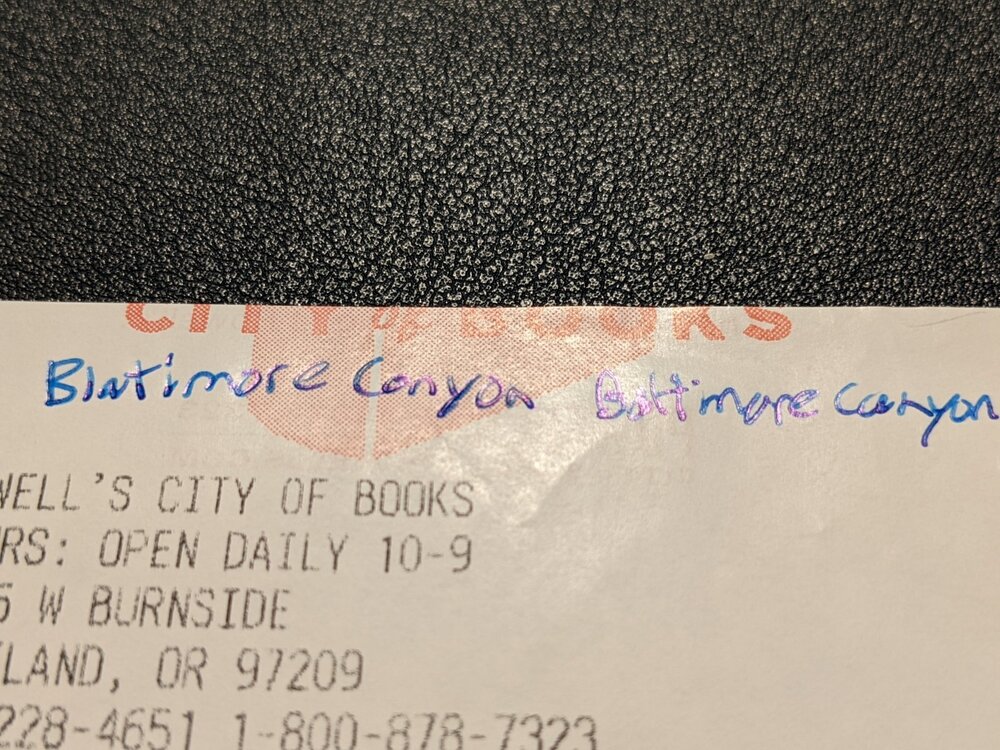 CITY of BOOKS
Blatimore Canyon Baltimore Canyon
WELL'S CITY OF BOOKS
RS: OPEN DAILY 10-9
5 W BURNSIDE
LAND, OR 97209
228-4651 1-800-878-7323